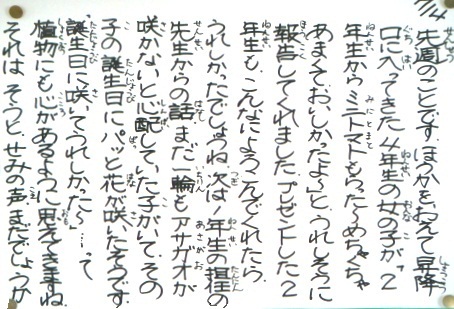 7/4
先週のことです。ほうかをおえて昇降
口に入ってきた4年生の女の子が"2
年生からミニトマトもらった〜めちゃくちゃ
あまくておいしかったよ〜とうれしそうに
報告してくれました。プレゼントした2
年生も、こんなによろこんでくれたら、
うれしかったでしょうね。次は1年生の担任の
先生からの話。まだ一輪もアサガオが
咲かないと心配していた子がいて、その
子の誕生日にパッと花が咲いたそうです。
誕生日に咲いてうれしかった〜」…って
植物にも心があるように思えてきますね。
それはそうと、せみの声まだでしょうか